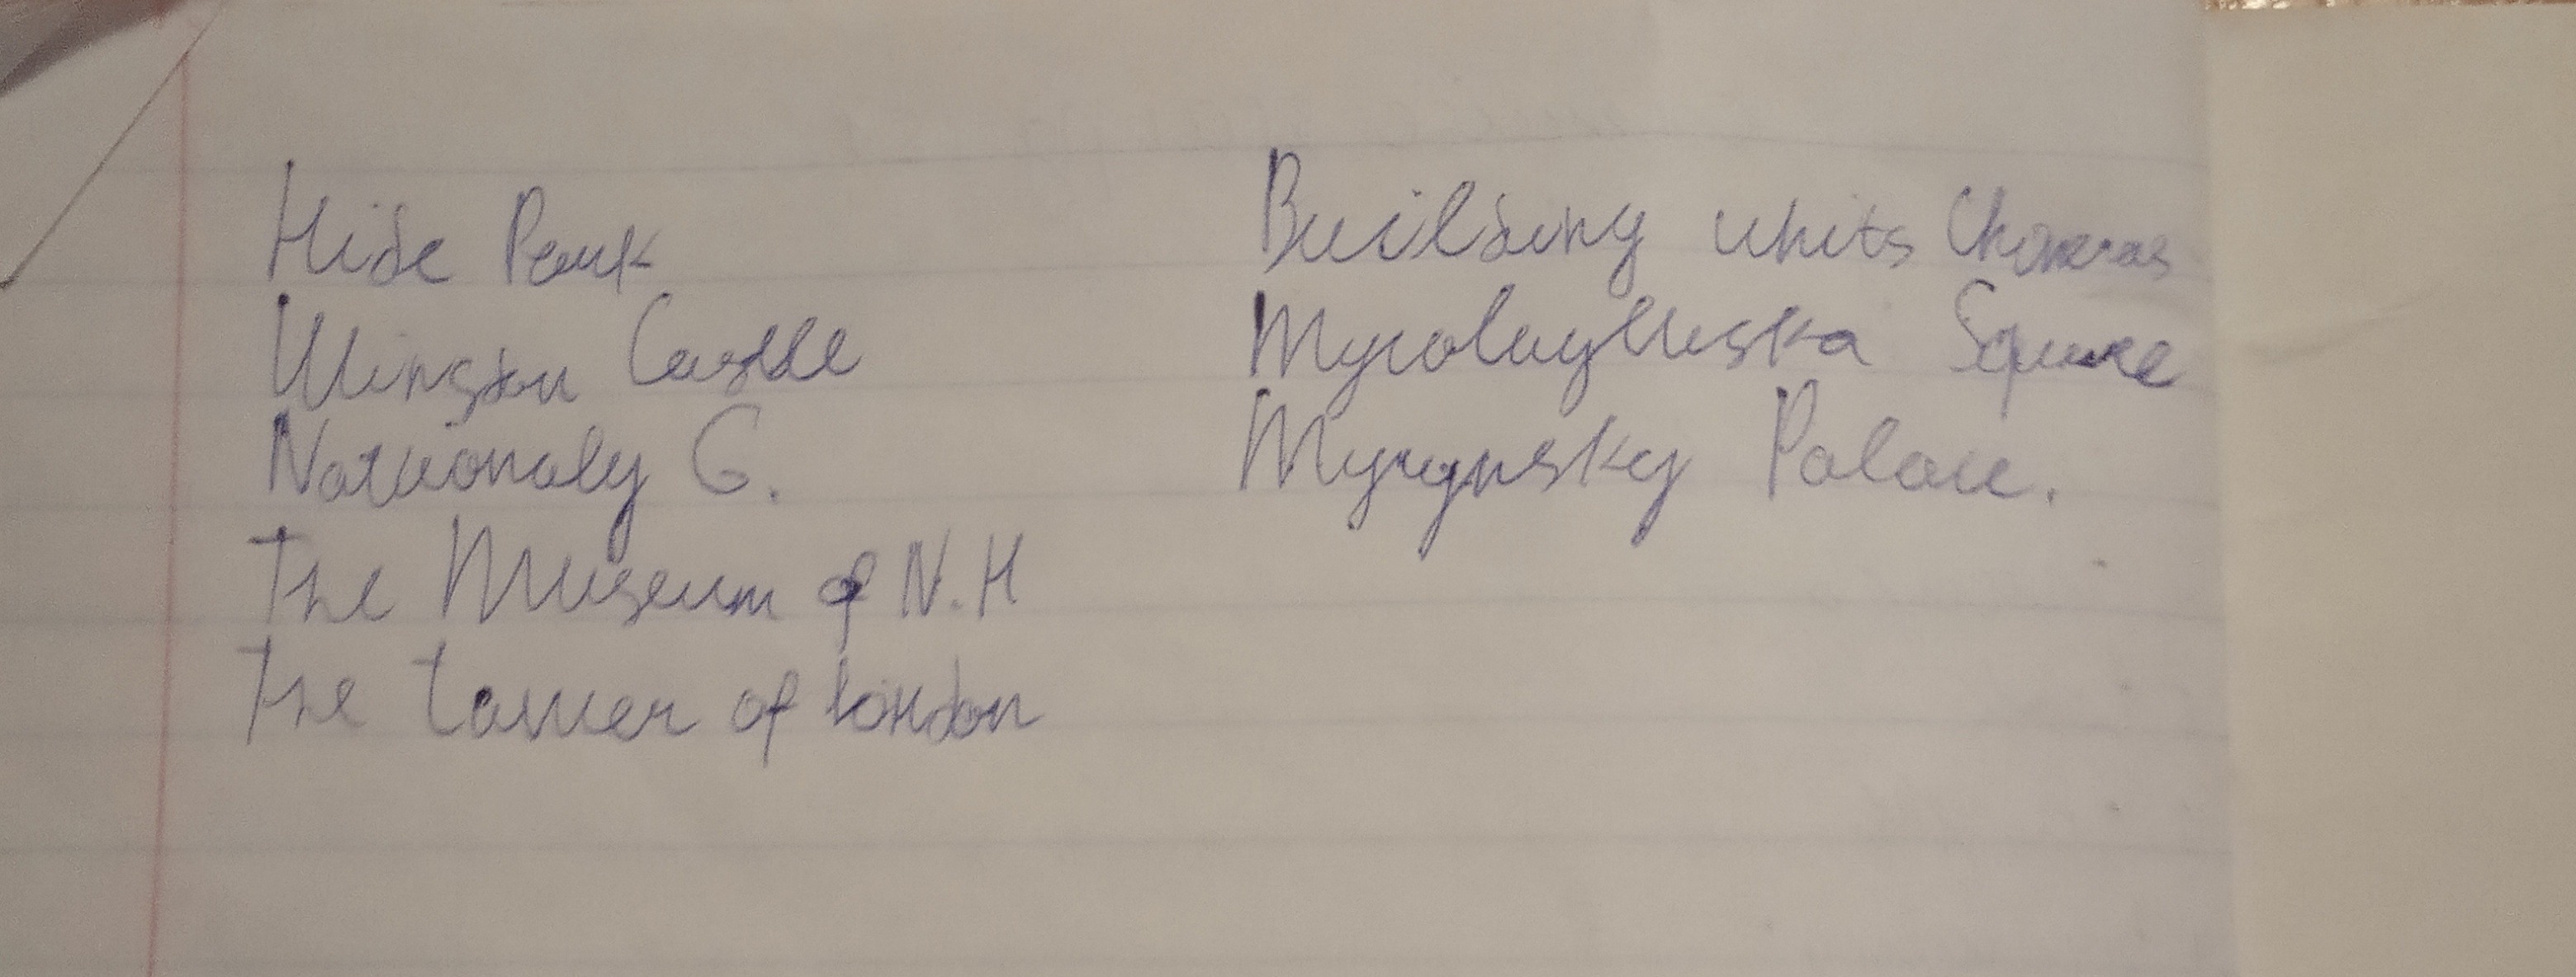 Hide Park
Wingson Castle
Nationaly G.
The Museum of N.H
The tower of london
Building whits
Mycolayivska Square
Myrynsky Palace.